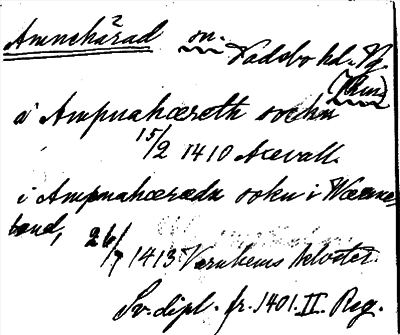 Amnehärad sn. Vadsbo hd. Vg
i Ampnahæreth sockn
15/2 1410 Axevall.
i Ampnahæradx sokn i Wæsne-
bond, 26/7 1413 Varnhems kloster.
Sv. dipl. fr. 1401. II. Reg.